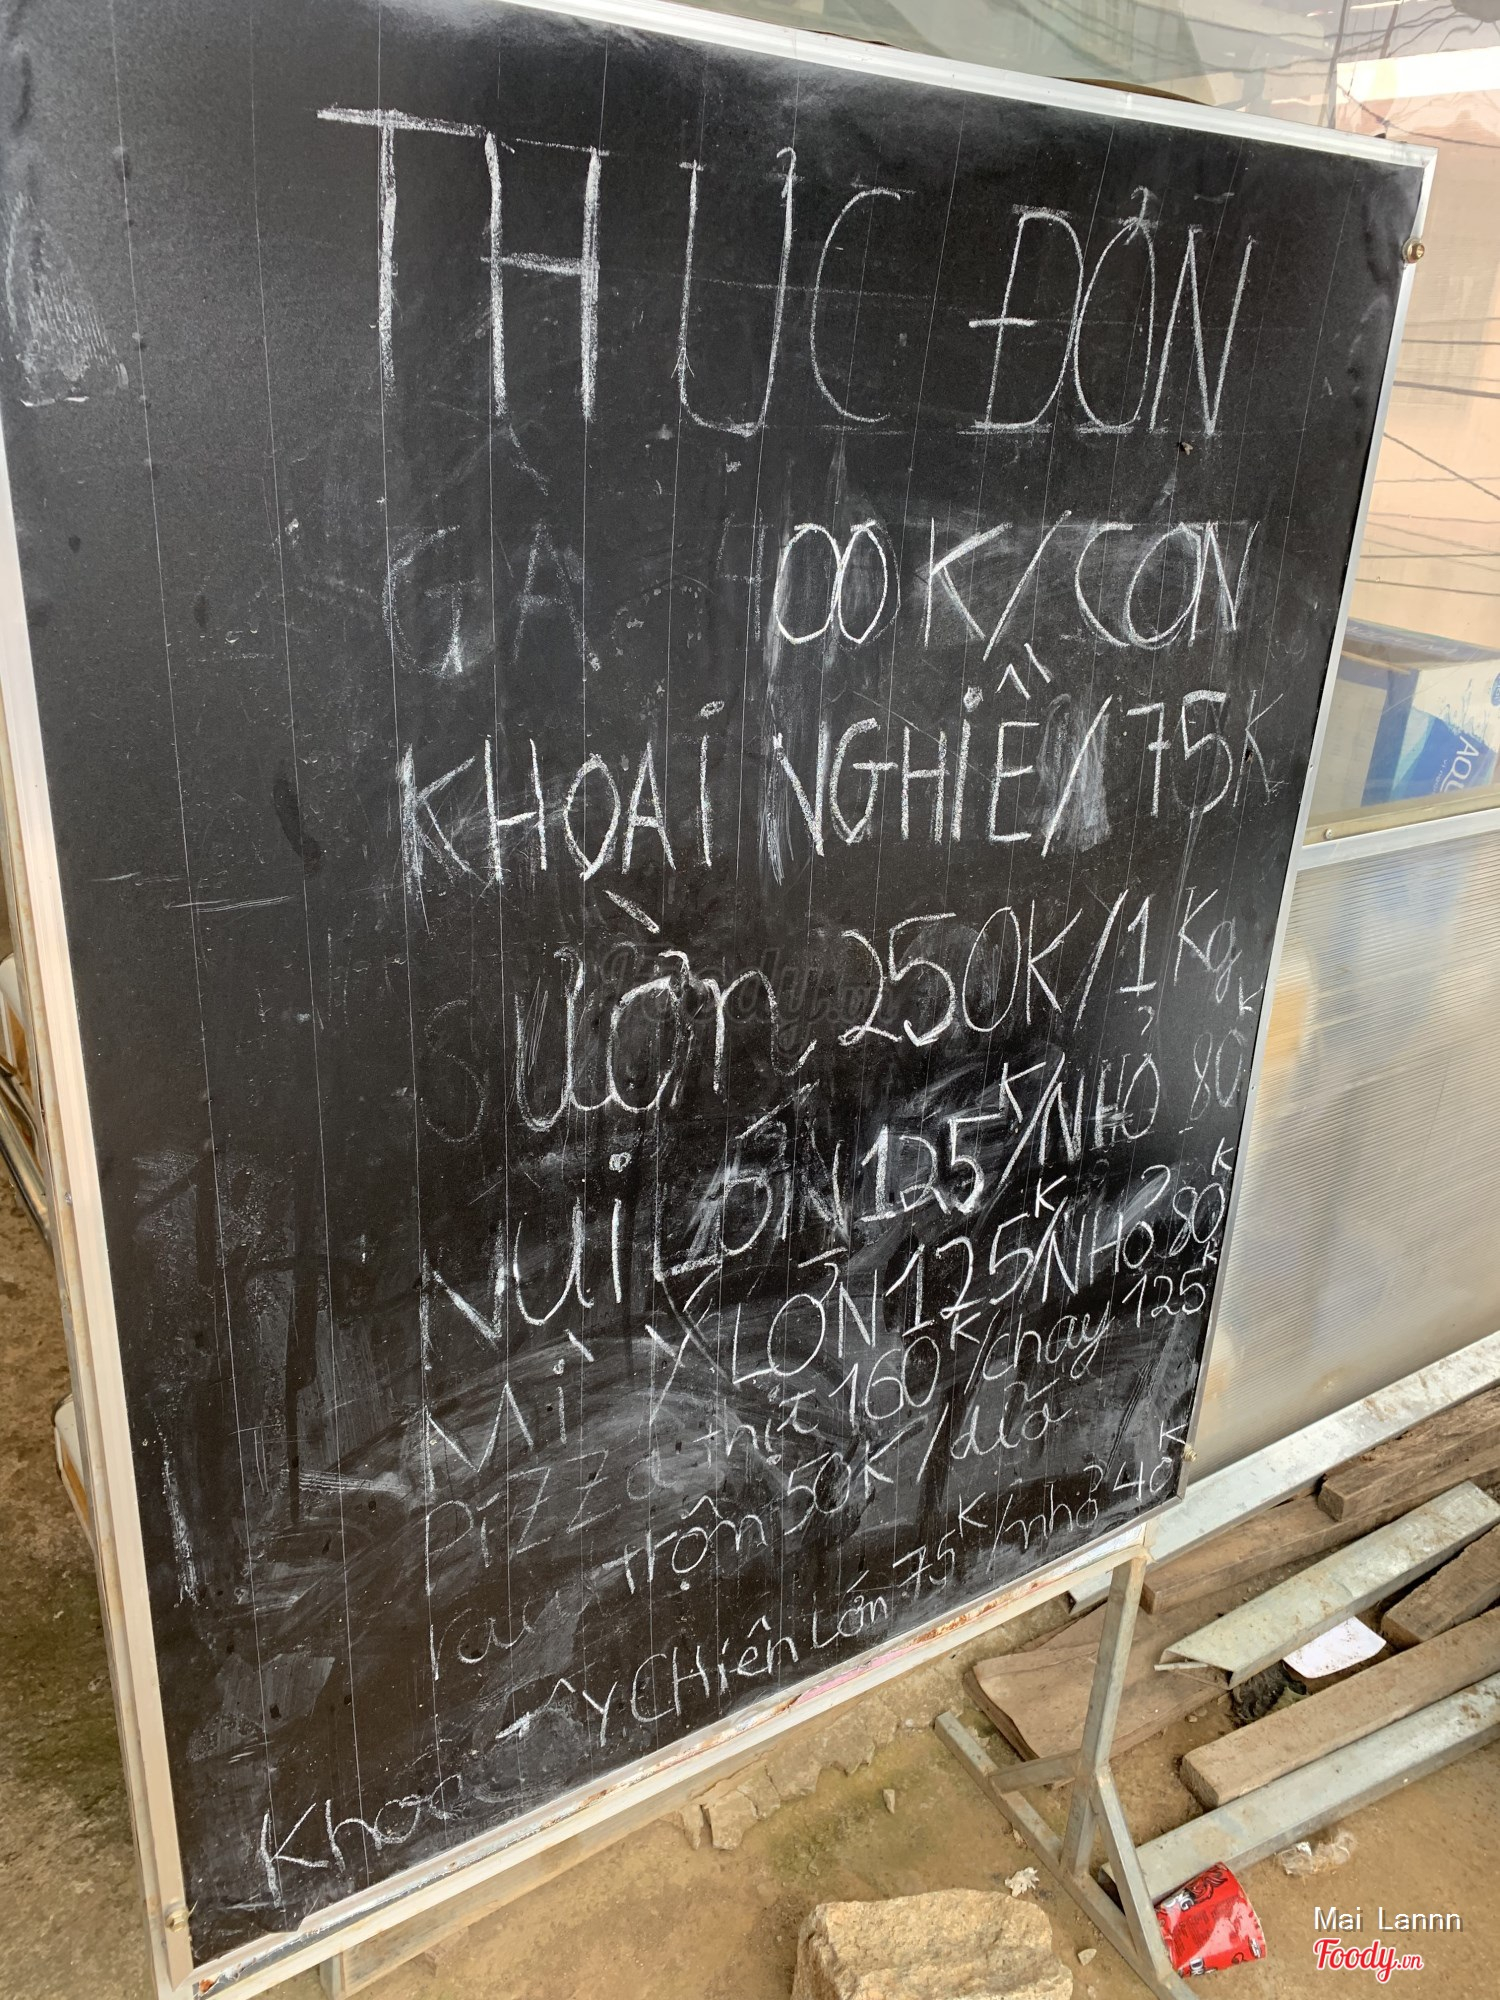 THỰC ĐƠN
GÀ 400K/CON
KHOAI NGHIỀ/75K
SƯỜN 250K/1Kg
NUI LỚN 125K/NHỎ 80K
MÌ Ý LỚN 125K/NHỎ 80K
PiZZa thịt 160K/chay 125K
rau trộn 50K/dĩa
Khoai tây CHiên Lớn 75K/nhỏ 40K
Foody.vn
AQU
Mai Lannn
Foody.vn